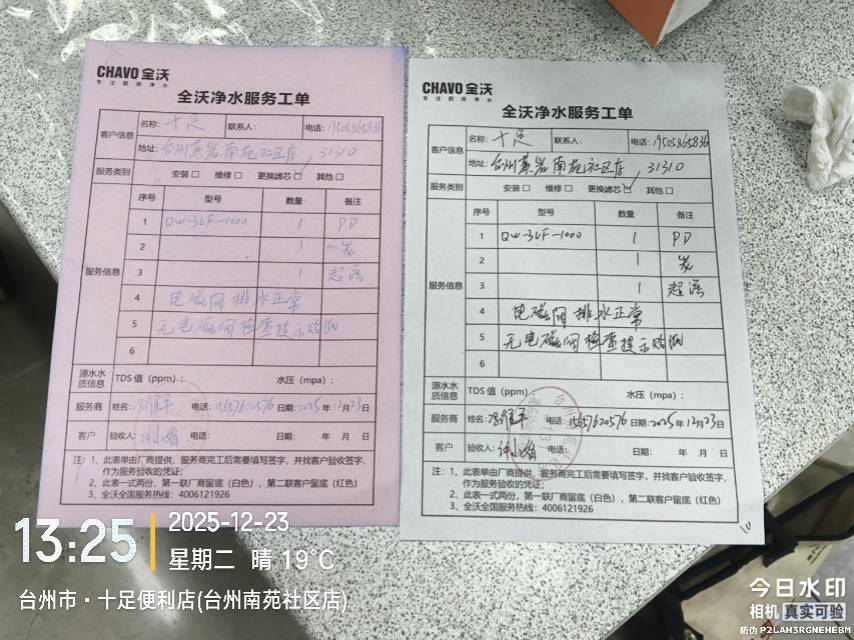 CHAVO 全沃
专注厨房净水
全沃净水服务工单
客户信息
名称：十足
联系人：
电话：19505365836
地址：台州黄岩南苑社区店 31310
服务类别
安装□ 维修□ 更换滤芯□ 其他□
服务信息
序号 型号 数量 备注
1 QW-3UF-1000 1 PP
2 1 炭
3 1 超滤
4 电磁阀排水正常
5 无电磁阀检查提示
6
源水水质信息
TDS 值（ppm）： 水压（mpa）：
服务商
姓名： 电话：15657620576 日期：2025年12月23日
客户
验收人： 电话： 日期： 年 月 日
注：1、此表单由厂商提供，服务商完工后需要填写签字，并找客户验收签字，
作为服务验收的凭证；
2、此表一式两份，第一联厂商留底（白色），第二联客户留底（红色）
3、全沃全国服务热线：4006121926
CHAVO 全沃
专注厨房净水
全沃净水服务工单
客户信息
名称：十足
联系人：
电话：19505365836
地址：台州黄岩南苑社区店 31310
服务类别
安装□ 维修□ 更换滤芯□ 其他□
服务信息
序号 型号 数量 备注
1 QW-3UF-1000 1 PP
2 1 炭
3 1 超滤
4 电磁阀排水正常
5 无电磁阀检查提示
6
源水水质信息
TDS 值（ppm）： 水压（mpa）：
服务商
姓名： 电话：15657620576 日期：2025年12月23日
客户
验收人： 电话： 日期： 年 月 日
注：1、此表单由厂商提供，服务商完工后需要填写签字，并找客户验收签字，
作为服务验收的凭证；
2、此表一式两份，第一联厂商留底（白色），第二联客户留底（红色）
3、全沃全国服务热线：4006121926
13:25
2025-12-23
星期二 晴 19°C
台州市·十足便利店(台州南苑社区店)
今日水印
相机 真实可验
防伪 P2LAH3RGNEHEBM